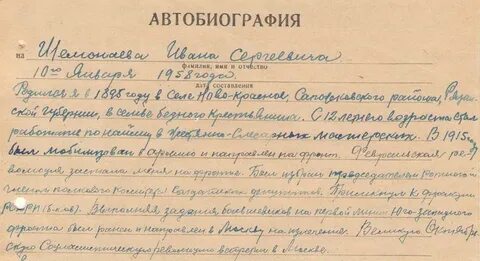 АВТОБИОГРАФИЯ
на Шемонаева Ивана Сергеевича
фамилия, имя и отчество
10го Января 1958 года
дата составления
Родился я в 1895 году в Селе Ново-Красное, Сапожковского района, Рязан-
ской Губернии, в семье бедного Крестьянина. С 12 летнего возраста стал
работать по найму в Слесарных мастерских. В 1915
был мобилизован в армию и направлен на фронт. Февральская рев-
волюция застала меня на фронте. Был избран председателем ротного
полкового Комитета Солдатских депутатов. Примкнул К фракции
РСДРП (б-ков). Выполняя задания большевиков на первой линии Юго-западного
фронта был ранен и направлен в Москву на излечение. Великую Октябрь
скую Социалистическую революцию встретил в Москве.